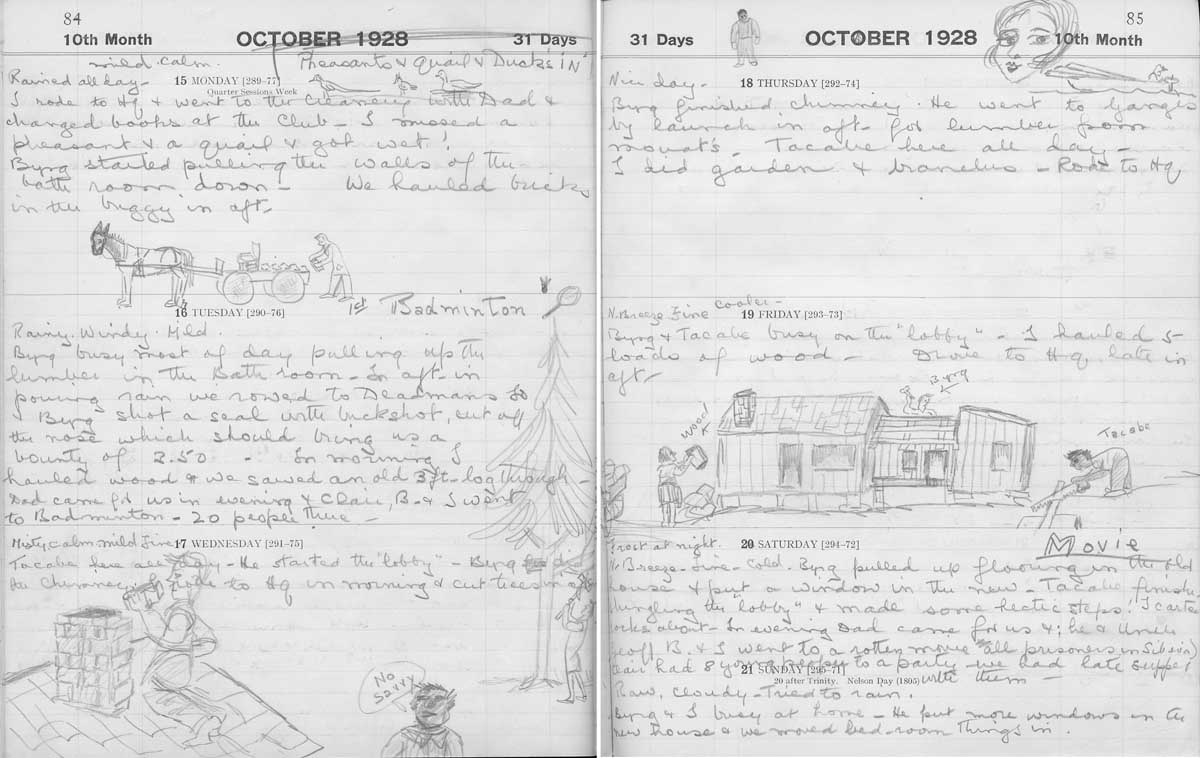 84
10th Month OCTOBER 1928 31 Days
mild calm. Pheasants & quail & Ducks "IN"
Rained all day - 15 MONDAY [289-77]
Quarter Sessions Week
I rode to Hq & went to the Creamery with Dad &
changed books at the Club - I missed a
pheasant & a quail & got wet!
Byrg started pulling the walls of the
bath room down - We hauled bricks
in the buggy in aft-
16 TUESDAY [290-76] 1st Badminton
Rainy. Windy. Mild.
Byrg busy most of day pulling up the
lumber in the Bath room - In aft- in
pouring rain we rowed to Deadmans &
Byrg shot a seal with buckshot, cut off
the nose which should bring us a
bounty of 2.50 - In morning I
hauled wood & we sawed an old 3ft- log through -
Dad came for us in evening & Clair, B. & I went
to Badminton - 20 people there -
Misty, calm mild Fine 17 WEDNESDAY [291-75]
Tacabe here all day - He started the "lobby" - Byrg did
the Chimney. to Hq in morning & cut trees in aft
No Savvy
85
31 Days OCTOBER 1928 10th Month
Nice day - 18 THURSDAY [292-74]
Byrg finished chimney. He went to Ganges
by launch in aft- for lumber from
Mouat's - Tacabe here all day -
I did garden & branches - Rode to Hq
N. Breeze Fine cooler - 19 FRIDAY [293-73]
Byrg & Tacabe busy on the "lobby" - I hauled 5
loads of wood - Drove to Hq late in
aft-
Wood
Byrg
Tacabe
Frost at night. 20 SATURDAY [294-72] Movie
N. Breeze - Fine - Cold. Byrg pulled up flooring in the old
house & put a window in the new - Tacabe finish
shingling the "lobby" & made some hectic steps! I carted
rocks about - In evening Dad came for us & he & Uncle
Geoff, B. & I went to a rotten movie "all prisoners in Siberia)
Clair had 8 to a party - we had late supper
21 SUNDAY [295-71] with them -
20 after Trinity. Nelson Day (1805)
Raw, cloudy - Tried to rain.
Byrg & I busy at home - He put more windows in the
new house & we moved bed-room things in.